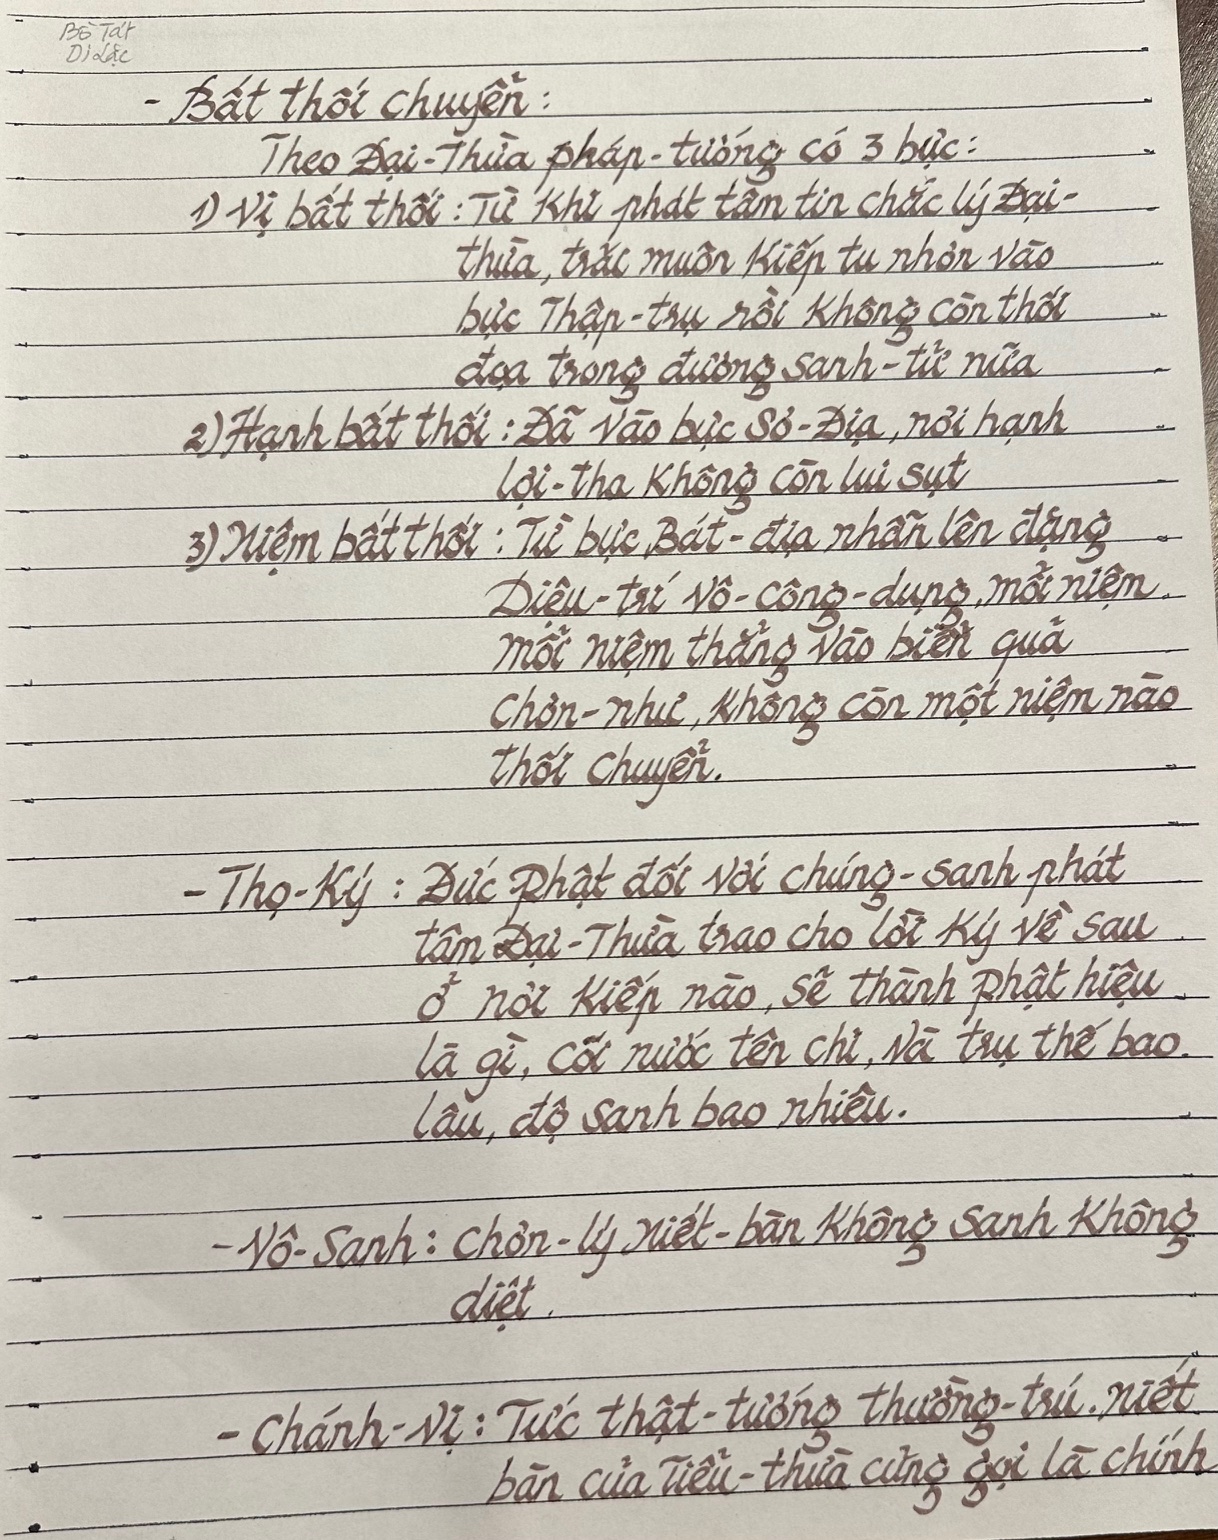 Bồ Tát
Di Lặc
- Bất thối chuyển :
Theo Đại-Thừa pháp-tướng có 3 bực :
1) Vị bất thối : Từ khi phát tâm tin chắc lý Đại-
thừa, trải muôn kiếp tu nhơn vào
bực Thập-trụ rồi không còn thối
đọa trong đường sanh-tử nữa
2) Hạnh bất thối : Đã vào bực Sơ-Địa, nơi hạnh
lợi-tha không còn lui sụt
3) Niệm bất thối : Từ bực Bát-địa nhẫn lên đặng
Diệu-trí vô-công-dụng, mỗi niệm
mỗi niệm thẳng vào biển quả
chơn-như, không còn một niệm nào
thối chuyển.
- Thọ-Ký : Đức Phật đối với chúng-sanh phát
tâm Đại-Thừa trao cho lời ký về sau
ở nơi kiếp nào, sẽ thành Phật hiệu
là gì, cõi nước tên chi, và trụ thế bao
lâu, độ sanh bao nhiêu.
- Vô-Sanh : Chơn-lý Niết-bàn không sanh không
diệt.
- Chánh-Vị : Tức thật-tướng thường-trú. Niết
bàn của Tiểu-thừa cũng gọi là chính